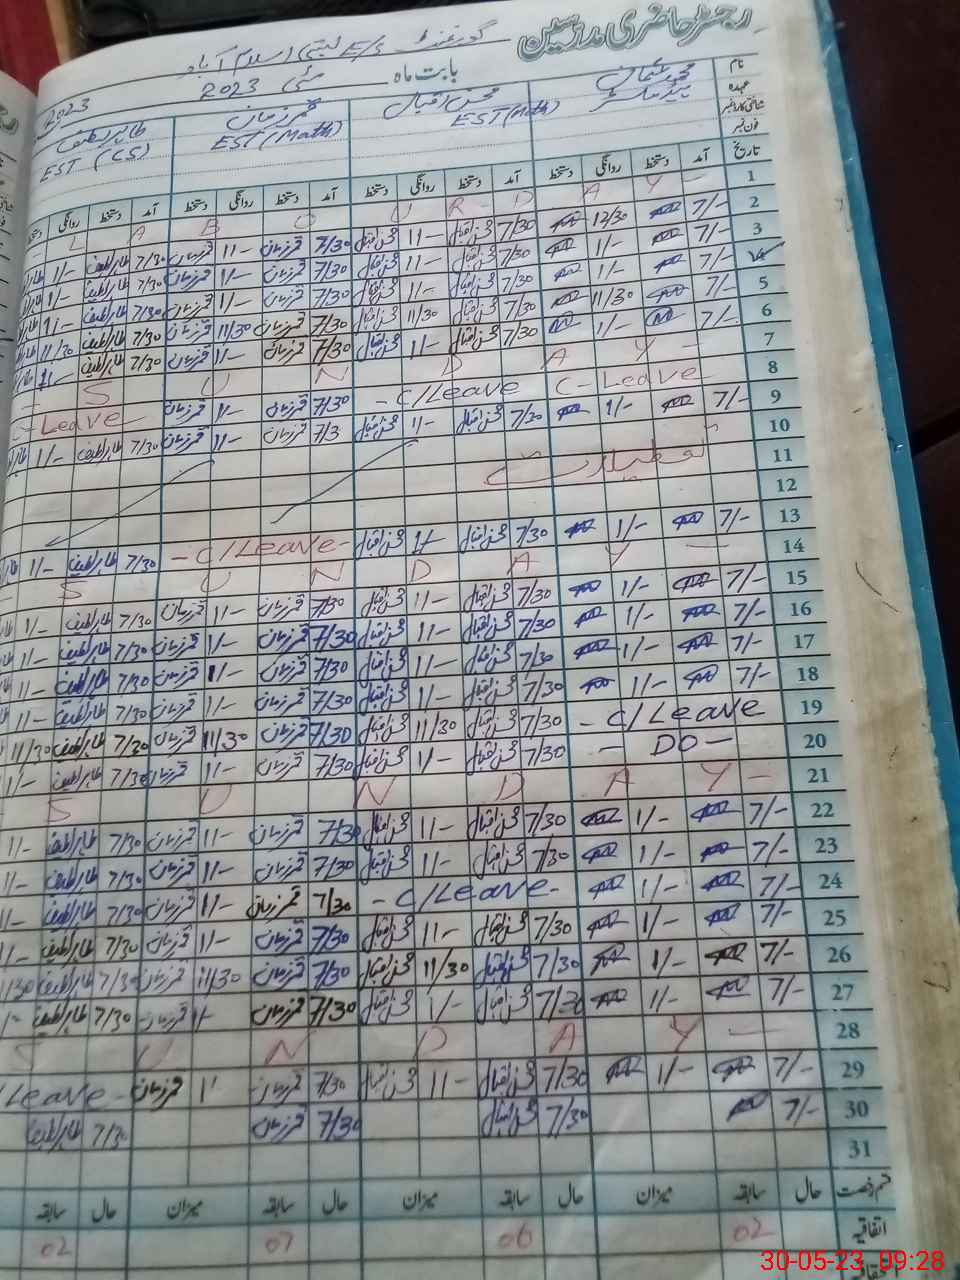 رجسٹر حاضری مدرسین
گورنمنٹ E/S بستی اسلام آباد
بابت ماہ مئی 2023
2023
نام محمد عثمان محسن اقبال قمر زمان طاہر لطیف
عہدہ ہیڈ ماسٹر EST (Math) EST (Math) EST (CS)
شناختی کارڈ نمبر
فون نمبر
تاریخ آمد دستخط روانگی دستخط آمد دستخط روانگی دستخط آمد دستخط روانگی دستخط آمد دستخط روانگی
1 L A B O U R - D A Y -
2 7/- 12/30 7/30 محسن اقبال 11- محسن اقبال 7/30 قمر زمان 11- قمر زمان 7/30 طاہر لطیف 1/-
3 7/- 1/- 7/30 محسن اقبال 11- محسن اقبال 7/30 قمر زمان 1/- قمر زمان 7/30 طاہر لطیف 1/-
4 7/- 1/- 7/30 محسن اقبال 11- محسن اقبال 7/30 قمر زمان 1/- قمر زمان 7/30 طاہر لطیف 1/-
5 7/- 11/30 7/30 محسن اقبال 11/30 محسن اقبال 7/30 قمر زمان 11/30 قمر زمان 7/30 طاہر لطیف 11/30
6 7/- 1/- 7/30 محسن اقبال 1/- محسن اقبال 7/30 قمر زمان 11- قمر زمان 7/30 طاہر لطیف 1/-
7 - S U N D A Y -
8 C-Leave - C/Leave 7/30 قمر زمان 1/- قمر زمان - Leave -
9 7/- 1/- 7/30 محسن اقبال 1/- محسن اقبال 7/3 قمر زمان 11- قمر زمان 7/30 طاہر لطیف 1/-
10
11 تعطیلات
12
13 7/- 1/- 7/30 محسن اقبال 1/- محسن اقبال - C/Leave - 7/30 طاہر لطیف 1/-
14 S U N D A Y -
15 7/- 1/- 7/30 محسن اقبال 11- محسن اقبال 7/30 قمر زمان 11- قمر زمان 7/30 طاہر لطیف 1/-
16 7/- 1/- 7/30 محسن اقبال 11- محسن اقبال 7/30 قمر زمان 1/- قمر زمان 7/30 طاہر لطیف 11-
17 7/- 1/- 7/30 محسن اقبال 11- محسن اقبال 7/30 قمر زمان 1- قمر زمان 7/30 طاہر لطیف 11-
18 7/- 1/- 7/30 محسن اقبال 1/- محسن اقبال 7/30 قمر زمان 11- قمر زمان 7/30 طاہر لطیف 11-
19 - C/Leave 7/30 محسن اقبال 11/30 محسن اقبال 7/30 قمر زمان 11/30 قمر زمان 7/30 طاہر لطیف 11/30
20 - DO - 7/30 محسن اقبال 1/- محسن اقبال 7/30 قمر زمان 11- قمر زمان 7/30 طاہر لطیف 1/-
21 S U N D A Y -
22 7/- 1/- 7/30 محسن اقبال 11- محسن اقبال 7/30 قمر زمان 11- قمر زمان 7/30 طاہر لطیف 11-
23 7/- 1/- 7/30 محسن اقبال 11- محسن اقبال 7/30 قمر زمان 11- قمر زمان 7/30 طاہر لطیف 1/-
24 7/- 1/- - C/Leave - 7/30 قمر زمان 1/- قمر زمان 7/30 طاہر لطیف 11-
25 7/- 1/- 7/30 محسن اقبال 11- محسن اقبال 7/30 قمر زمان 11- قمر زمان 7/30 طاہر لطیف 11-
26 7/- 1/- 7/30 محسن اقبال 11/30 محسن اقبال 7/30 قمر زمان 11/30 قمر زمان 7/30 طاہر لطیف 11/30
27 7/- 1/- 7/30 محسن اقبال 1/- محسن اقبال 7/30 قمر زمان 1/- قمر زمان 7/30 طاہر لطیف 1/-
28 S U N D A Y -
29 7/- 1/- 7/30 محسن اقبال 11- محسن اقبال 7/30 قمر زمان 1' قمر زمان /Leave -
30 7/- 7/30 محسن اقبال 7/30 قمر زمان 7/30 طاہر لطیف
31
قسم رخصت حال سابقہ میزان حال سابقہ میزان حال سابقہ میزان حال سابقہ
اتفاقیہ 02 06 07 02
30-05-23 09:28